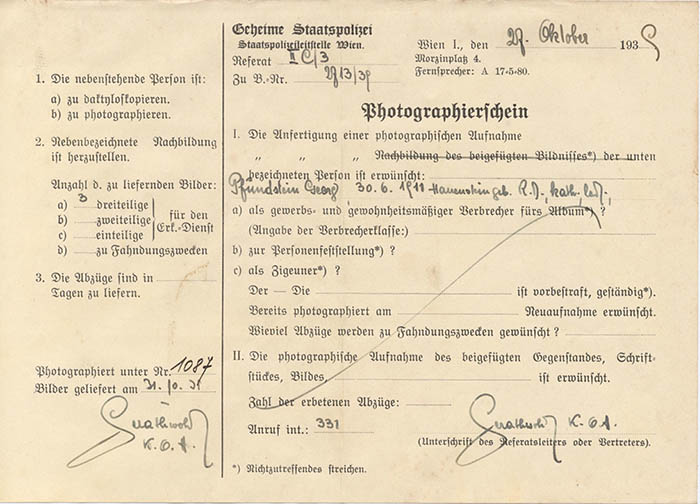 1. Die nebenstehende Person ist:
a) zu daktyloskopieren.
b) zu photographieren.
2. Nebenbezeichnete Nachbildung
ist herzustellen.
Anzahl d. zu liefernden Bilder:
a) 3 dreiteilige
b) zweiteilige
c) einteilige
für den
Erk.-Dienst
d) zu Fahndungszwecken
3. Die Abzüge sind in
Tagen zu liefern.
Photographiert unter Nr. 1087
Bilder geliefert am 31. 10. 39
K. O. A.
Geheime Staatspolizei
Staatspolizeileitstelle Wien.
Referat II C/3
Zu B.-Nr. 2713/39
Wien I., den 27. Oktober 1939
Morzinplatz 4.
Fernsprecher: A 17-5-80.
Photographierschein
I. Die Anfertigung einer photographischen Aufnahme
" " " Nachbildung des beigefügten Bildnisses*) der unten
bezeichneten Person ist erwünscht:
Pfundstein Georg 30. 6. 1911 geb. R. D., kath., led.,
a) als gewerbs- und gewohnheitsmäßiger Verbrecher fürs Album*) ?
(Angabe der Verbrecherklasse:)
b) zur Personenfeststellung*) ?
c) als Zigeuner*) ?
Der — Die ist vorbestraft, geständig*).
Bereits photographiert am Neuaufnahme erwünscht.
Wieviel Abzüge werden zu Fahndungszwecken gewünscht ?
II. Die photographische Aufnahme des beigefügten Gegenstandes, Schrift-
stückes, Bildes, ist erwünscht.
Zahl der erbetenen Abzüge:
Anruf int.: 331
K. O. A.
(Unterschrift des Referatsleiters oder Vertreters).
*) Nichtzutreffendes streichen.